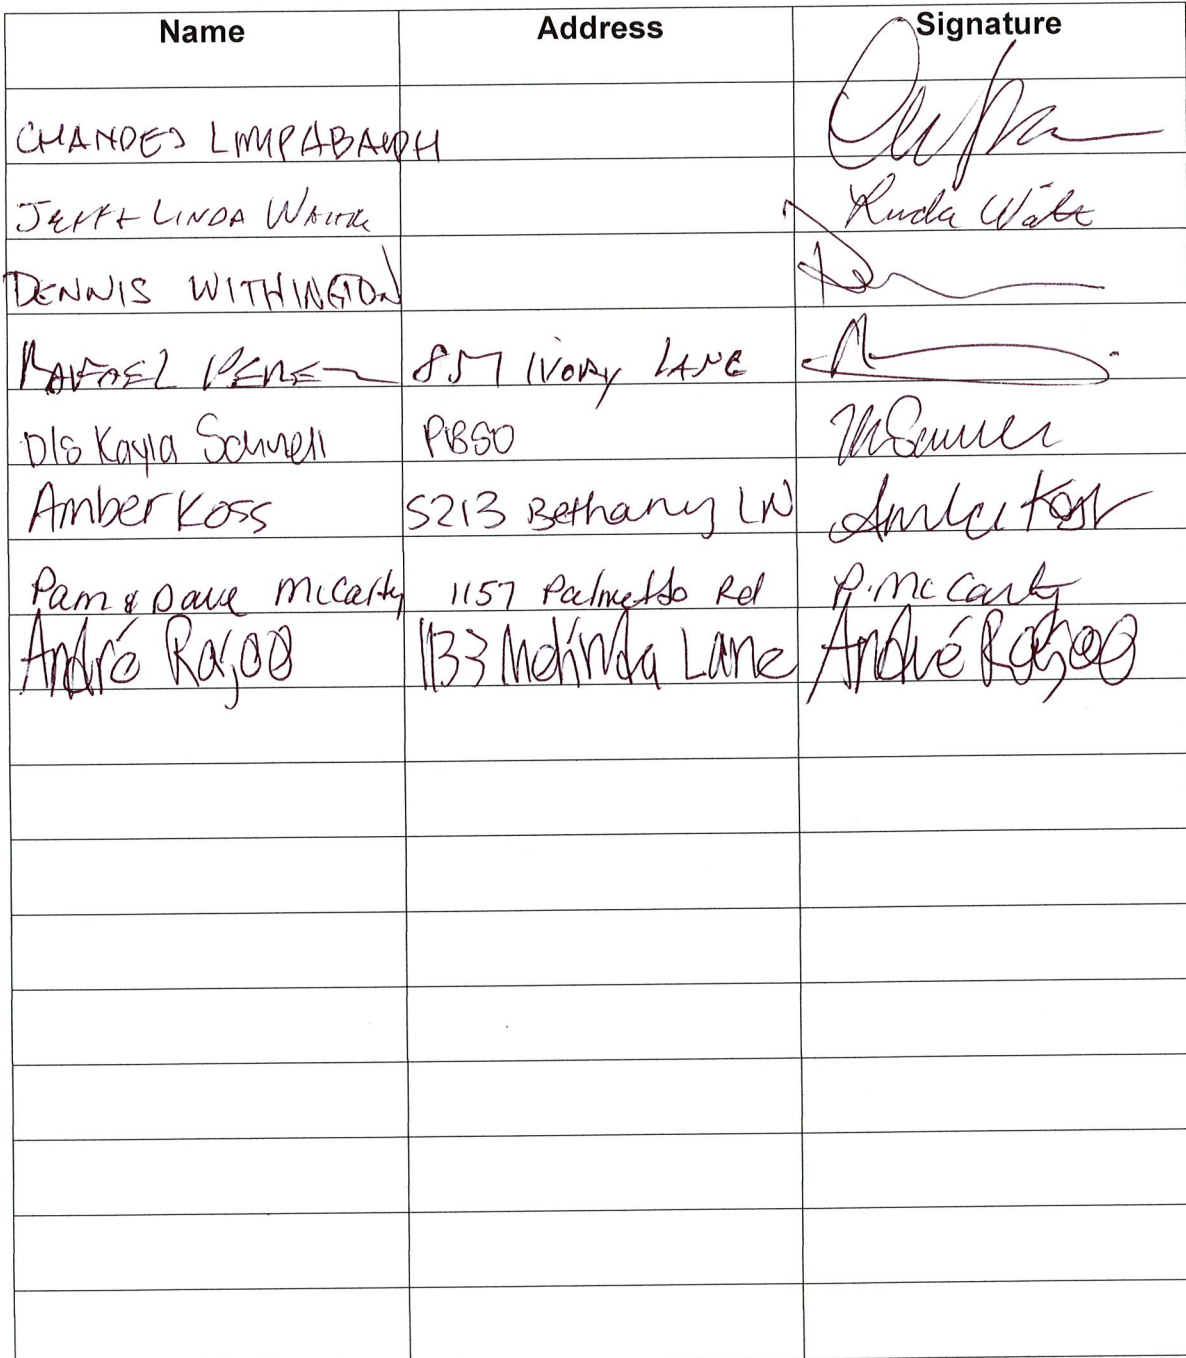 Name Address Signature
CHANDES LIMPABANDH
JEFF + LINDA Linda
DENNIS WITHINGTON
RAFAEL PEREZ 857 IVORY LANE
D/S Kayla Schnell PBSO
Amber Koss 5213 Bethany LN Amber Koss
Pam & Dave McCarty 1157 Palmetto Rd P. McCarty
André Rojoo 1133 Melinda Lane André Rojoo